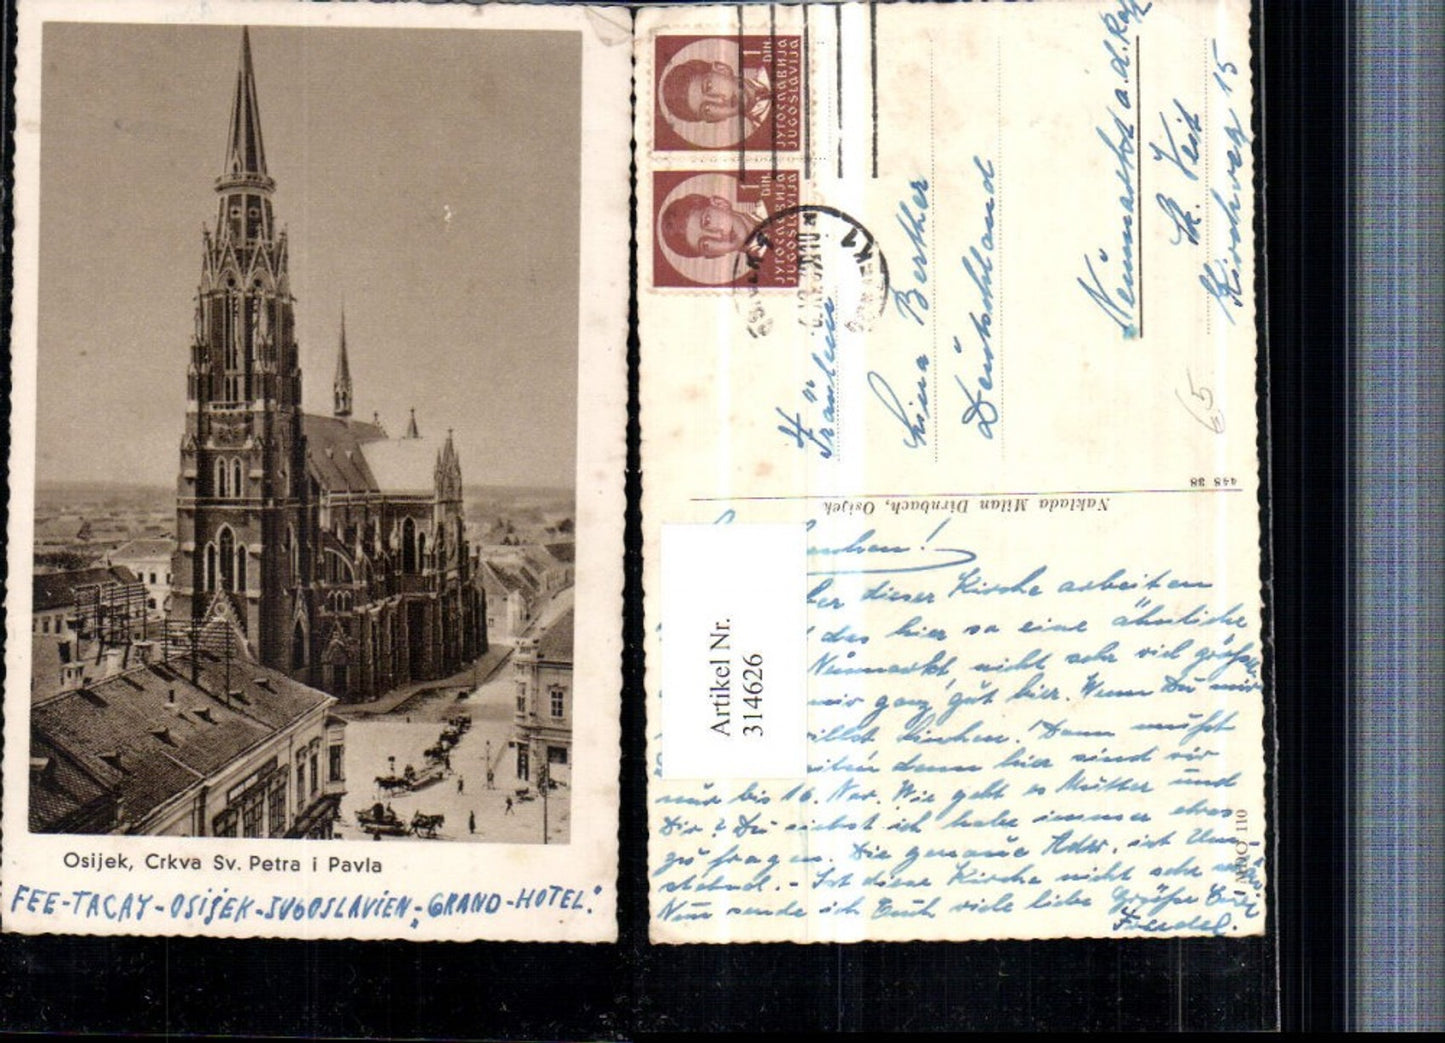 Osijek, Crkva Sv. Petra i Pavla
FEE-TACAY-OSIJEK-JUGOSLAVIEN „GRAND-HOTEL."
1
DIN.
ЈУГОСЛАВИЈА
JUGOSLAVIJA
1
DIN.
ЈУГОСЛАВИЈА
JUGOSLAVIJA
1
Fräulein
Lina Berther
Deutschland
Neumarkt a.d. Rott
St. Veit
Kirchweg 15
65
448 38
Naklada Milan Dirnbach, Osijek
Artikel Nr.
314626
dieser Kirche arbeiten
das hier so eine ähnliche
Neumarkt nicht sehr viel größer
mir ganz gut hier. Wenn Du mir
willst Dann mußt
denn hier sind wir
nur bis 16. Nov. Wie geht es Mutter und
Dir? Du siehst ich habe immer etwas
zu fragen. Die genaue Adr. ist
stehend. - Ist diese Kirche nicht sehr
Nun sende ich Euch viele liebe Grüße Eure
Friedel.
110